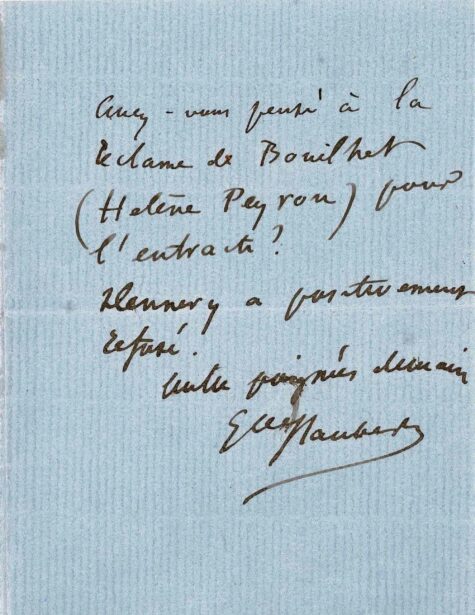 avez-vous pensé à la
réclame de Bouilhet
(Hélène Peyron) pour
l'entracte?
Dennery a positivement
refusé.
poignées de main
Gve Flaubert